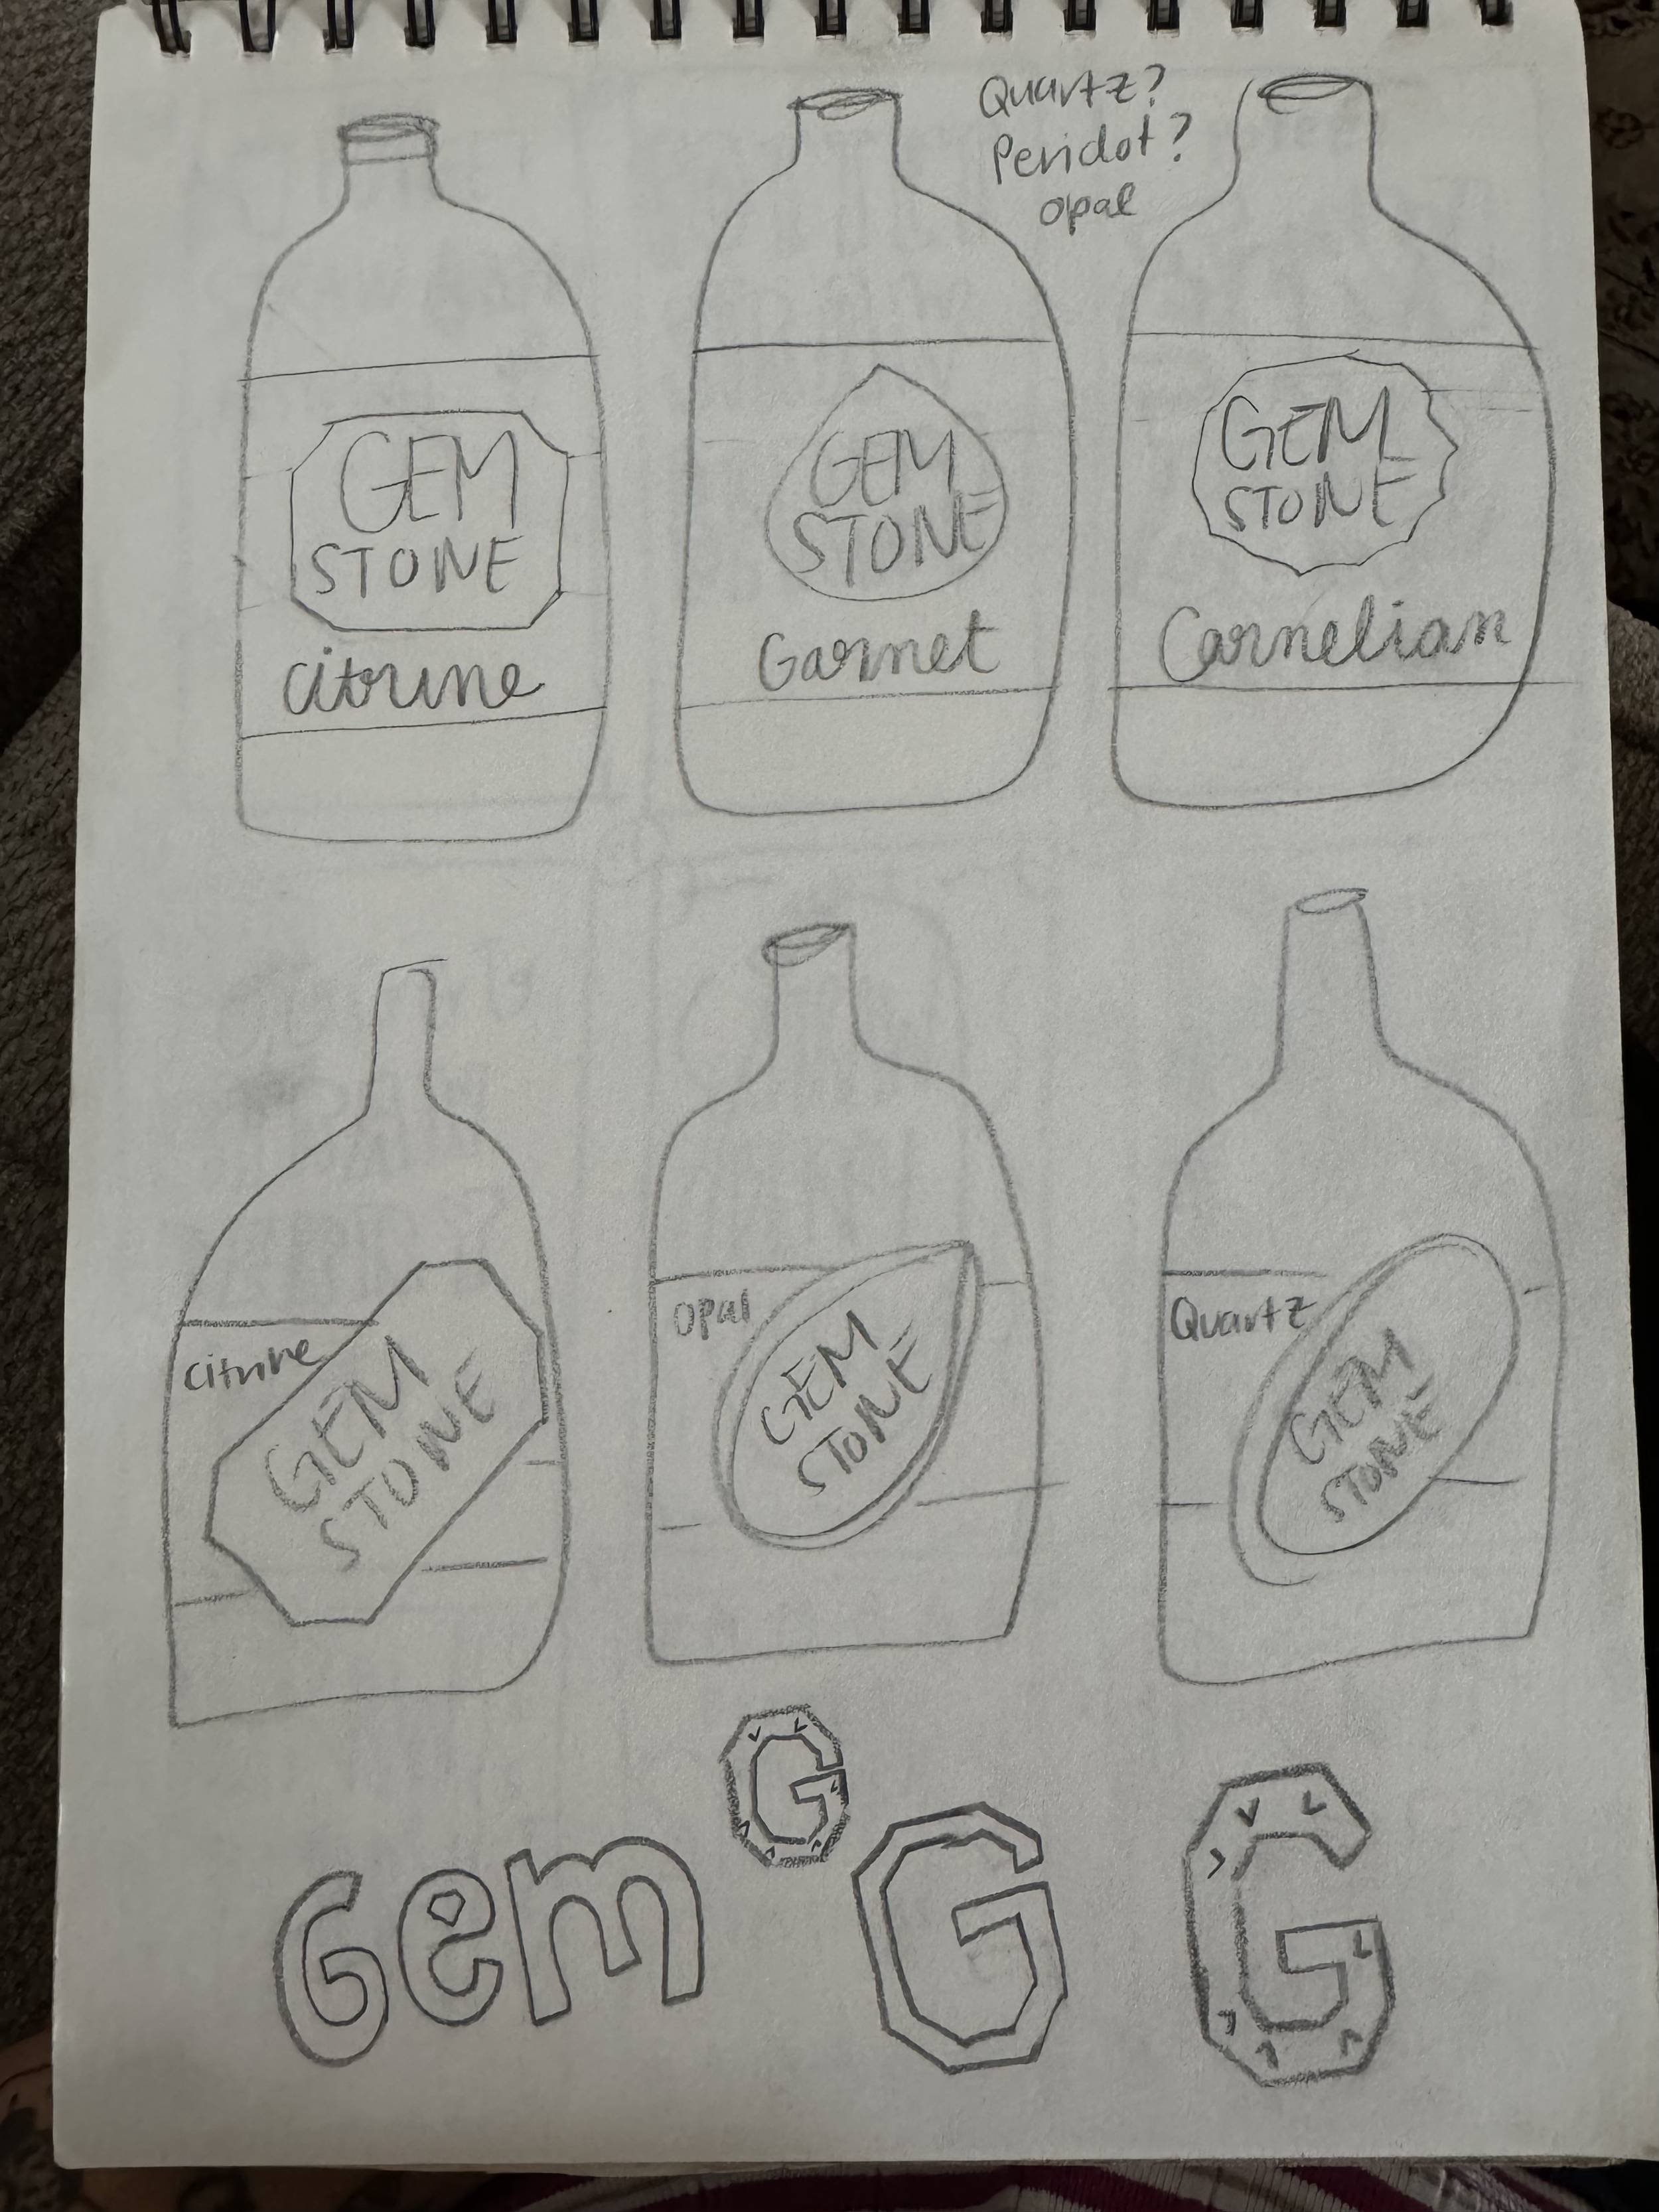 Quartz?
Peridot?
opal
GEM
STONE
citrine
GEM
STONE
Garnet
GEM
STONE
Carnelian
citrine
GEM
STONE
opal
GEM
STONE
Quartz
GEM
STONE
Gem
G
G
G